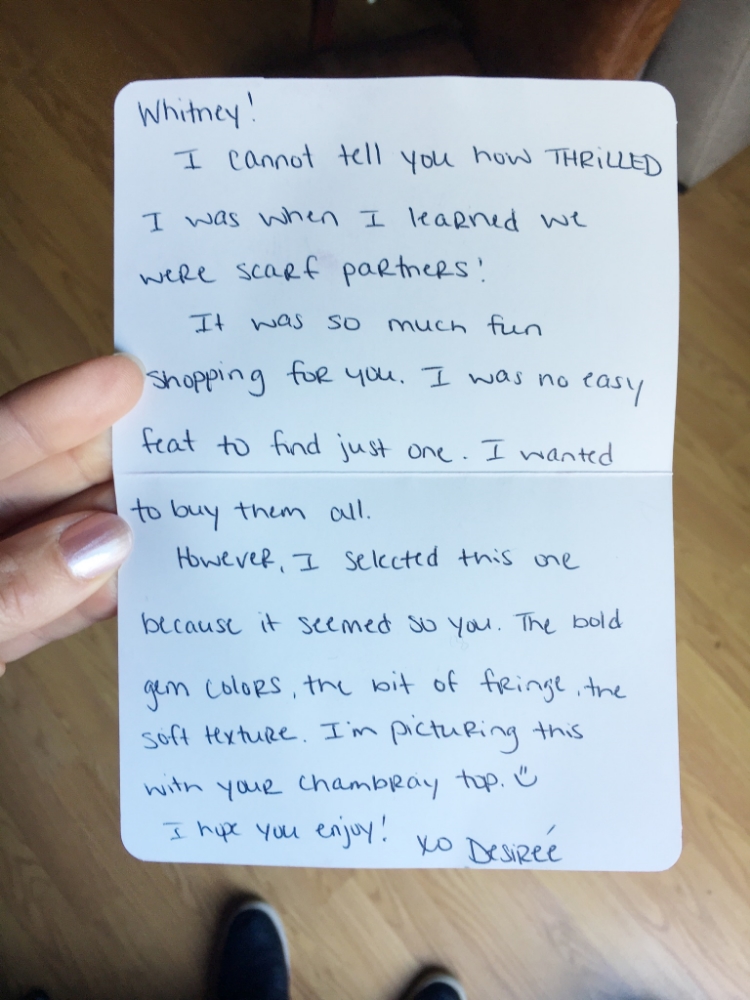 Whitney!
I cannot tell you how THRILLED
I was when I learned we
were scarf partners!
It was so much fun
shopping for you. I was no easy
feat to find just one. I wanted
to buy them all.
However, I selected this one
because it seemed so you. The bold
gem colors, the bit of fringe, the
soft texture. I'm picturing this
with your chambray top. ☺
I hope you enjoy! xo Desireé